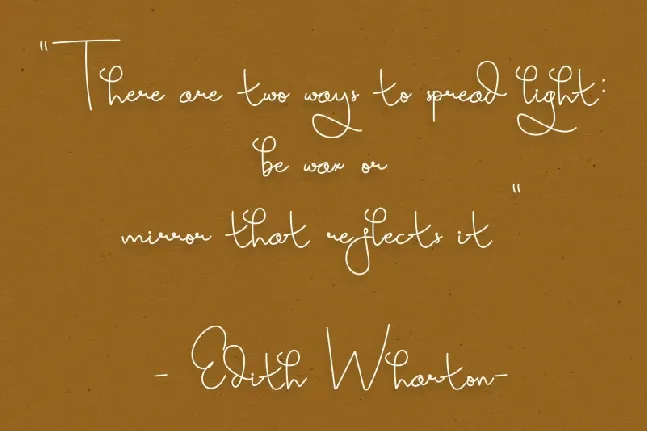 "There are two ways to spread light:
be wax or
mirror that reflects it"
- Edith Wharton-